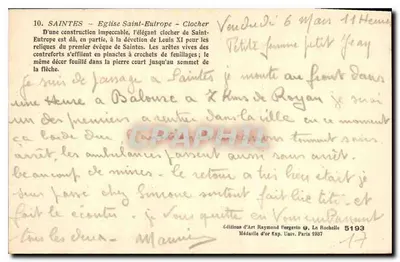 10. SAINTES - Eglise Saint-Eutrope - Clocher
D'une construction impeccable, l'élégant clocher de Saint-
Eutrope est dû, en partie, à la dévotion de Louis XI pour les
reliques du premier évêque de Saintes. Les arêtes vives des
contreforts s'effilent en pinacles à crochets de feuillages ; le
même décor fouillé dans la pierre court jusqu'au sommet de
la flèche.
Vendredi 6 Mars 11 Heures
Petite femme petit Jeay
Je suis de passage a Saintes je monte au front dans
une Heure a 7 Kms de Royan je serai
un des premiers a rentre dans la ville en ce moment
ca barde dur tonnent sans
arrêt, les ambulances passent aussi sans arrêt.
beaucoup de mines. le retour a été
passe chez surtout fait lire et
fait le écouter. je vous quitte en Vous embrassant
tous les deux.
Editions d'Art Raymond Bergevin, La Rochelle 5193
Médaille d'or Exp. Univ. Paris 1937
17
CPAPHIL